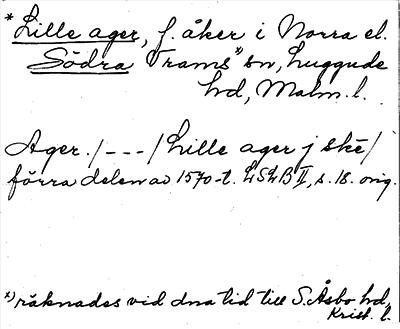 * Lille ager, f. åker i Norra el.
Södra Vrams x) sn, Luggude
hd, Malm. l.
Ager. /---/ Lille ager j ske /
förra delen av 1570-t. LSLB II, s. 18. orig.
x) räknades vid dna tid till S. Åsbo hd,
Krist. l.